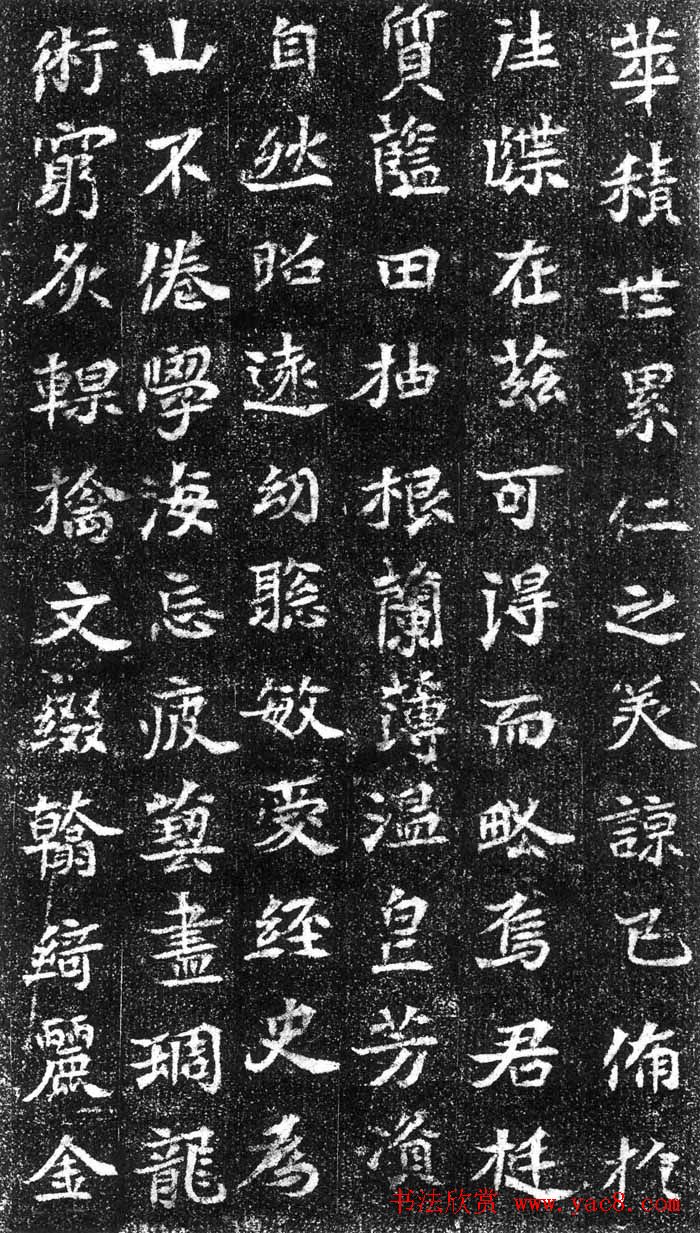 華積世累仁之美諒已備於
註牒在茲可得而略焉君挺
質藍田抽根蘭薄溫芳
自然昭遠幼聰敏愛經史為
山不倦學海忘疲藝盡琱龍
術窮炙輠摛文綴翰綺麗金
书法欣赏 www.yac8.com